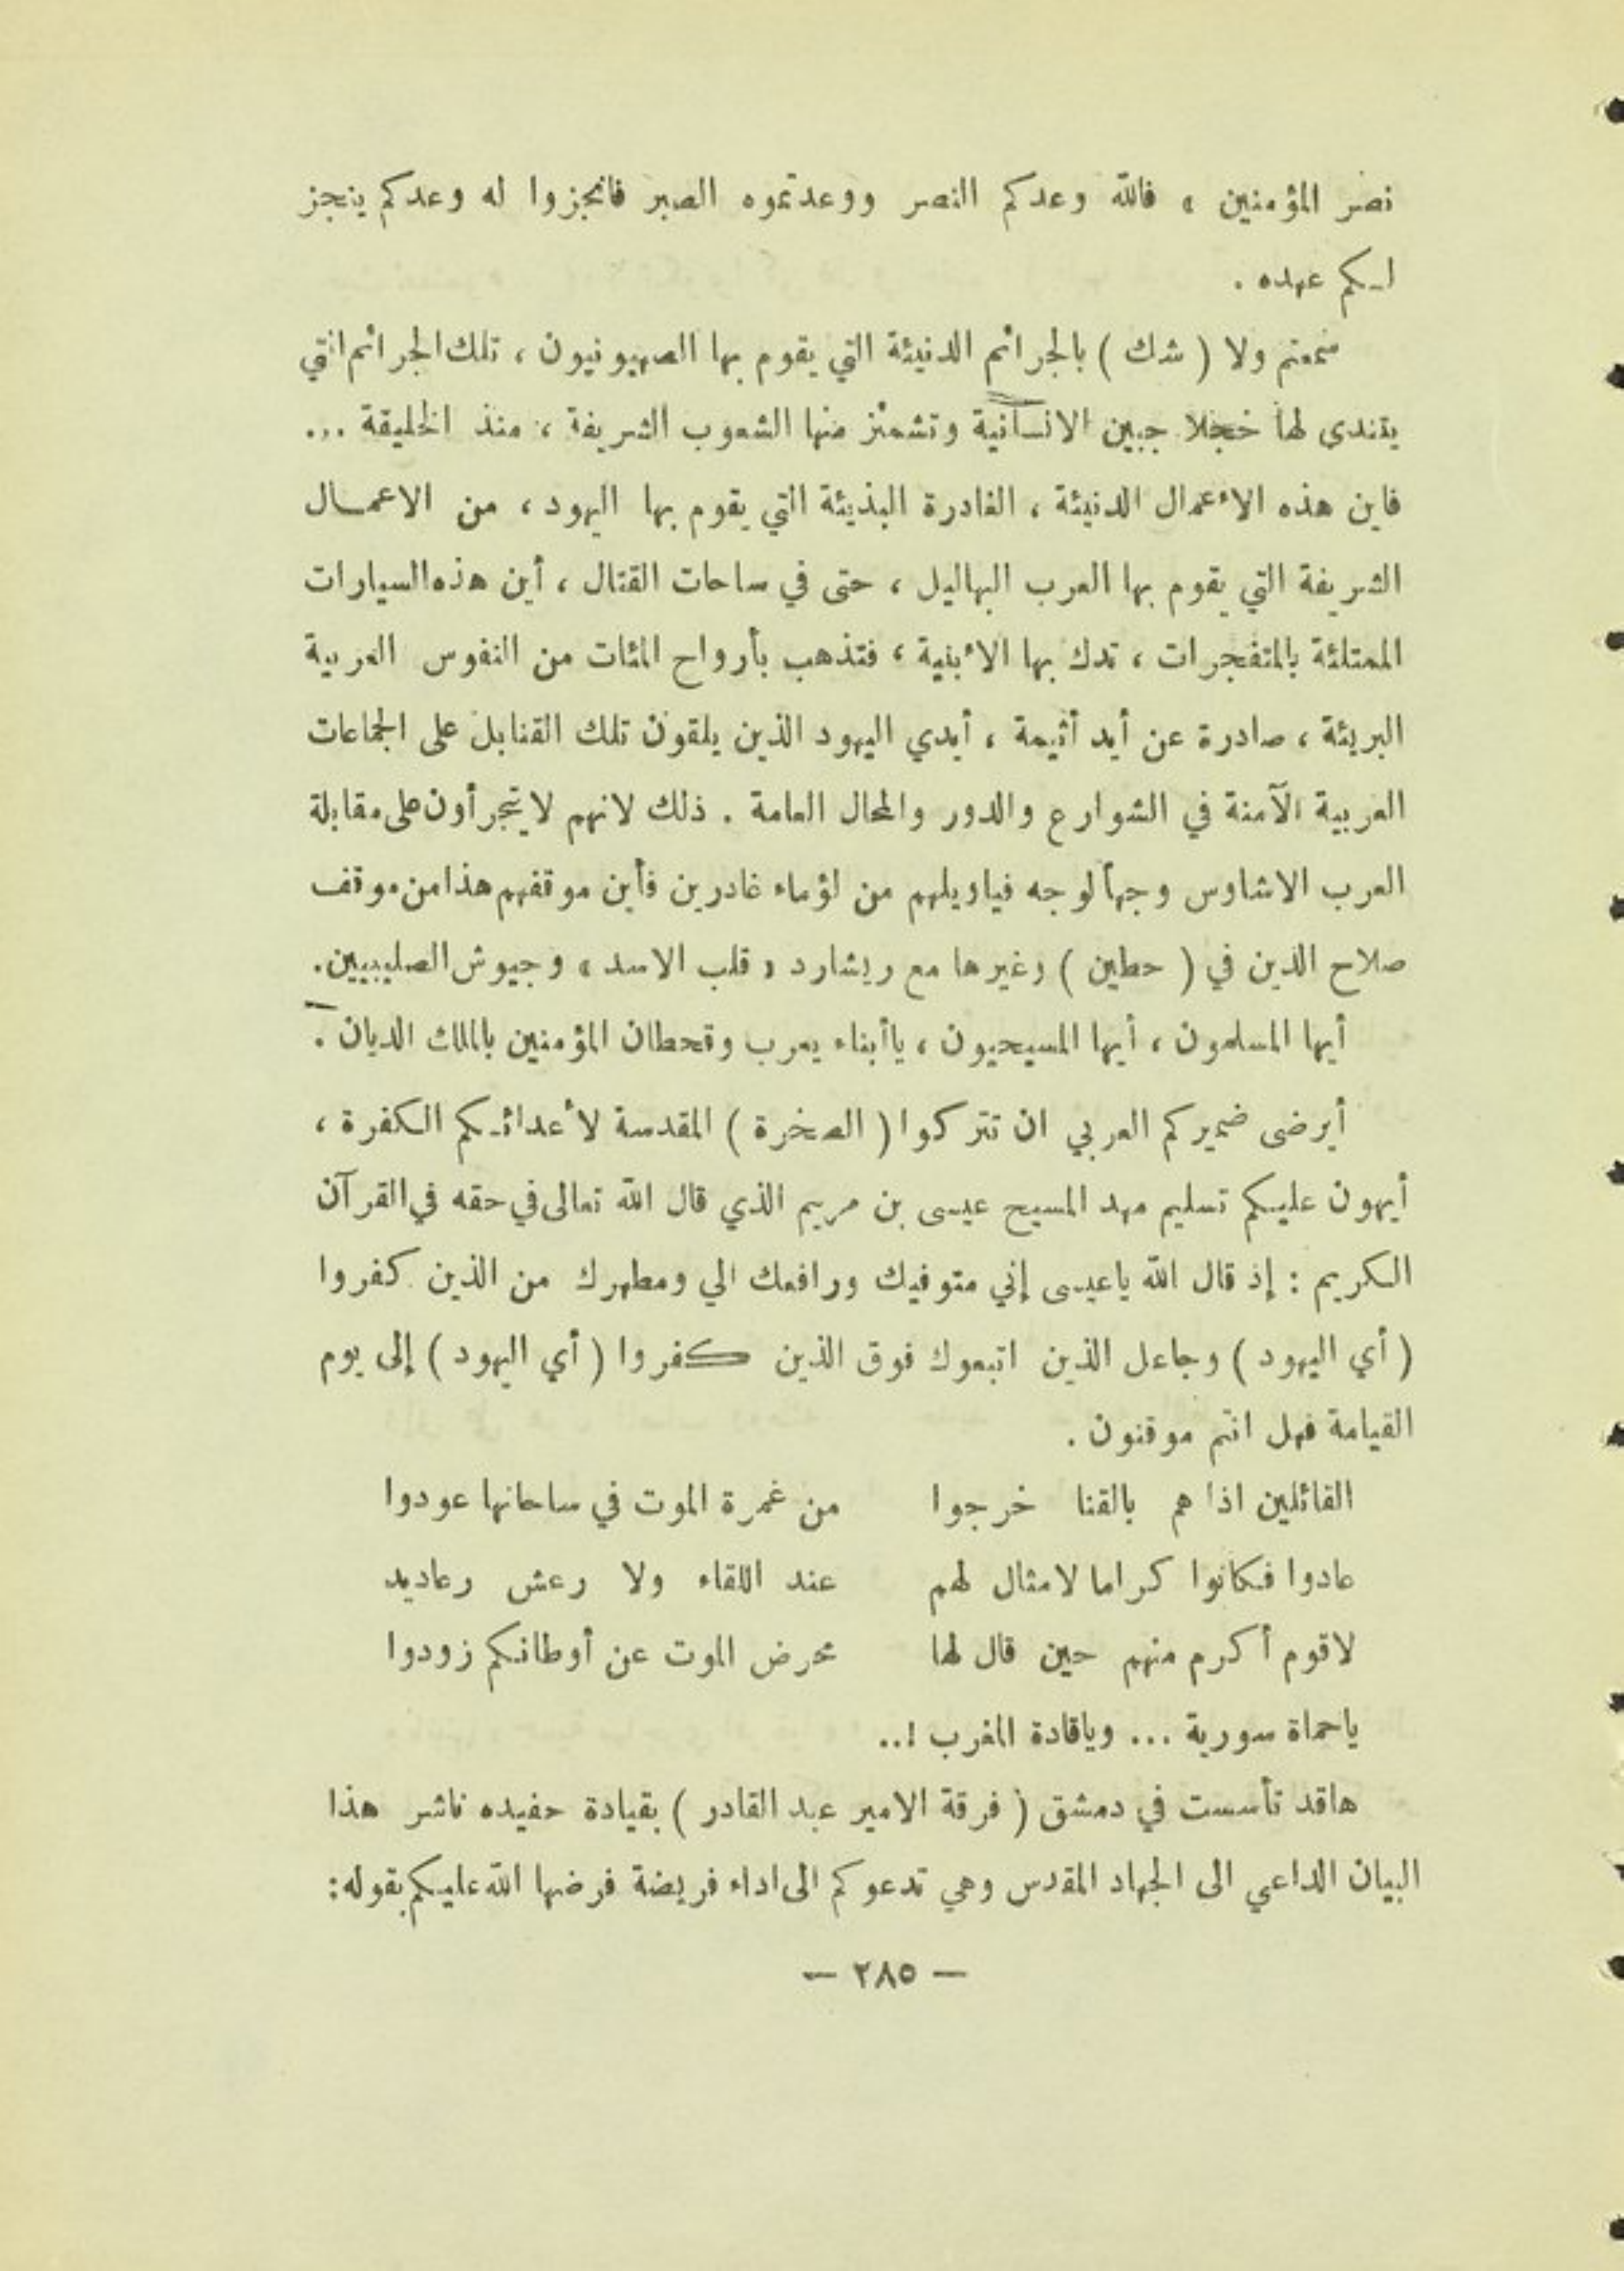 نصر المؤمنين » فالله وعدكم النصر ووعدتموه الصبر فانجزوا له وعدكم ينجز
لـكم عهده .
سمعتم ولا ( شك ) بالجرائم الدنيئة التي يقوم بها الصهيونيون ، تلك الجرائم التي
يتندى لها خجلا جبين الانسانية وتشمئز منها الشعوب الشريفة ، منذ الخليقة ...
فاين هذه الأعمال الدنيئة ، الغادرة البذيئة التي يقوم بها اليهود ، من الاعمـال
الشريفة التي يقوم بها العرب البهاليل ، حتى في ساحات القتال ، أين هذه السيارات
الممتلئة بالمتفجرات ، تدك بها الأبنية ، فتذهب بأرواح المئات من النفوس العربية
البريئة ، صادرة عن أيد أثيمة ، أيدي اليهود الذين يلقون تلك القنابل على الجماعات
العربية الآمنة في الشوارع والدور والمحال العامة . ذلك لانهم لا يتجرأون على مقابلة
العرب الاشاوس وجهاً لوجه فياويلهم من لؤماء غادرين فأين موقفهم هذا من موقف
صلاح الدين في ( حطين ) وغيرها مع ريشارد « قلب الاسد » وجيوش الصليبيين.
أيها المسلمون ، أيها المسيحيون ، ياأبناء يعرب وقحطان المؤمنين بالملك الديان .
أيرضى ضميركم العربي ان تتركوا ( الصخرة ) المقدسة لأعدائـكم الكفرة ،
أيهون عليـكم تسليم مهد المسيح عيسى بن مريم الذي قال الله تعالى في حقه في القرآن
الكريم : إذ قال الله ياعيسى إني متوفيك ورافعك الي ومطهرك من الذين كفروا
( أي اليهود ) وجاعل الذين اتبعوك فوق الذين كفروا ( أي اليهود ) إلى يوم
القيامة فهل انتم موقنون .
القائلين اذا هم بالقنا خرجوا من غمرة الموت في ساحاتها عودوا
عادوا فكانوا كراما لامثال لهم عند اللقاء ولا رعش رعاديد
لاقوم أكرم منهم حين قال لها محرض الموت عن أوطانـكم زودوا
ياحماة سورية ... وياقادة المغرب !..
هاقد تأسست في دمشق ( فرقة الامير عبد القادر ) بقيادة حفيده ناشر هذا
البيان الداعي الى الجهاد المقدس وهي تدعوكم الى اداء فريضة فرضها الله عليـكم بقوله:
— ٢٨٥ —